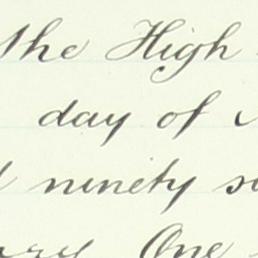 the High
day of
ninety
One